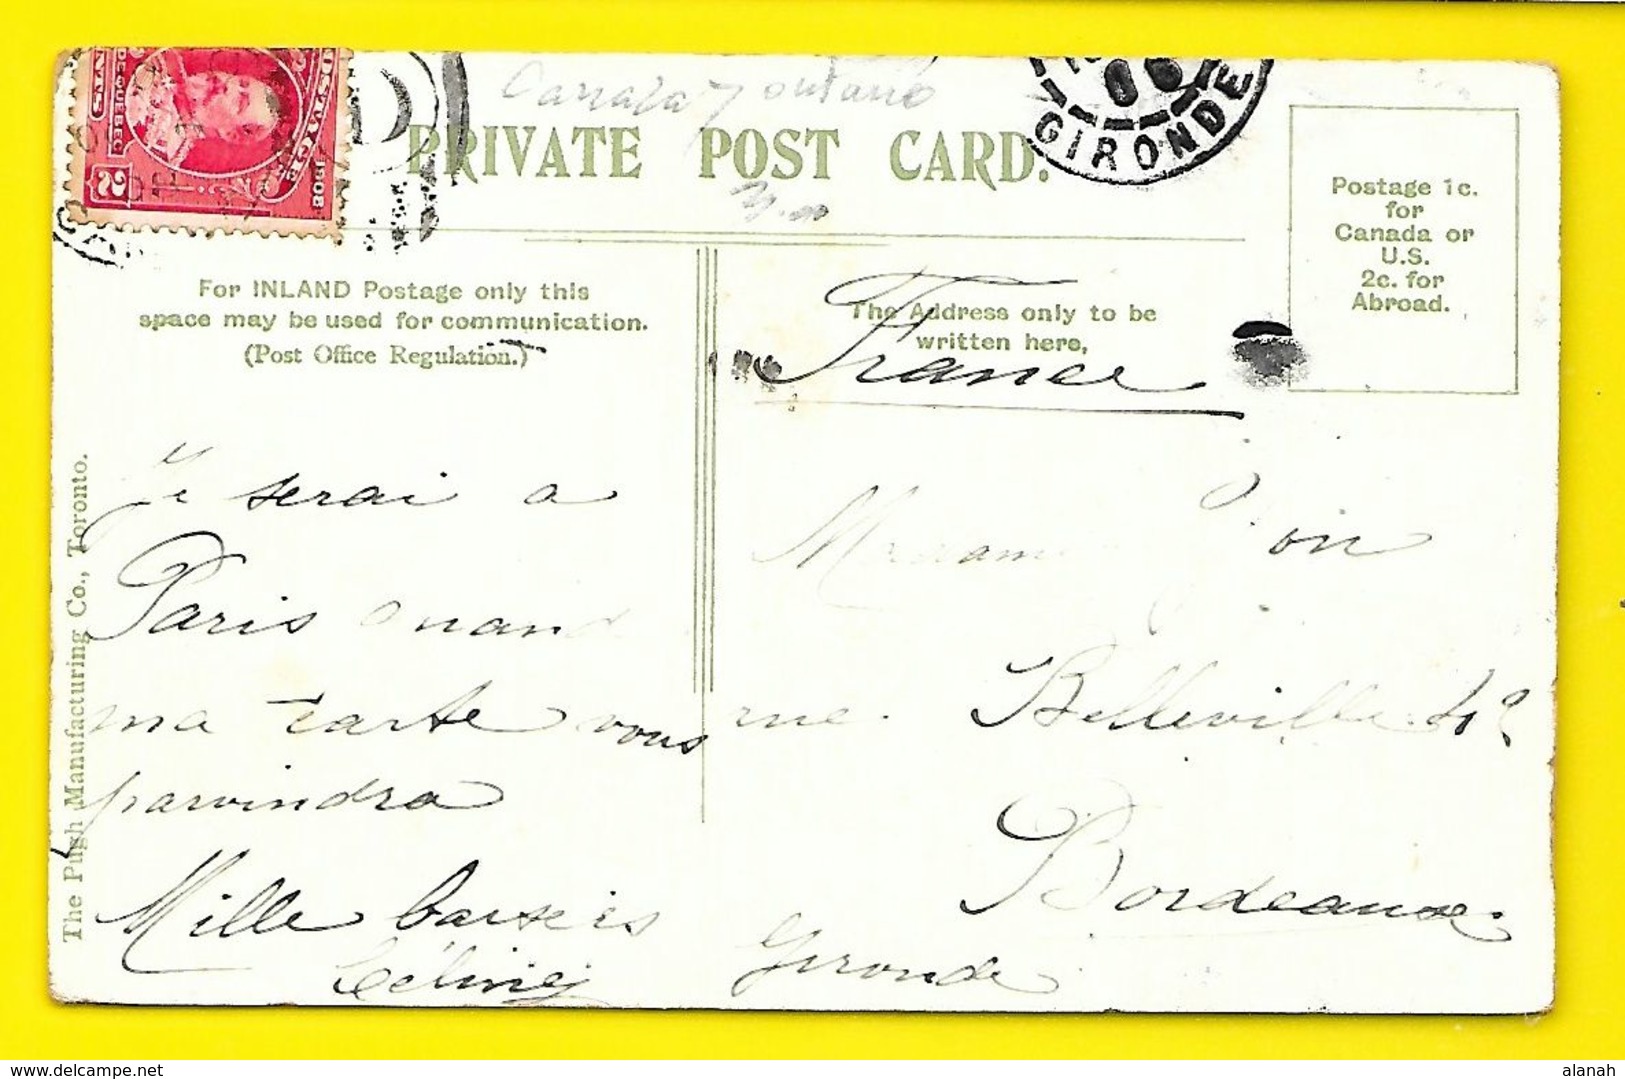 Canada Ontario
PRIVATE POST CARD.
GIRONDE
POSTAGE
1908
DE QUEBEC
2
CENTS
Postage 1c.
for
Canada or
U.S.
2c. for
Abroad.
For INLAND Postage only this
space may be used for communication.
(Post Office Regulation.)
The Address only to be
written here,
France
Je serai a
Paris quand
ma carte vous
parvindra
Mille baisers
Madame
rue. Belleville
Bordeaux
Gironde
The Pugh Manufacturing Co., Toronto.
alamyimages.net
alanah